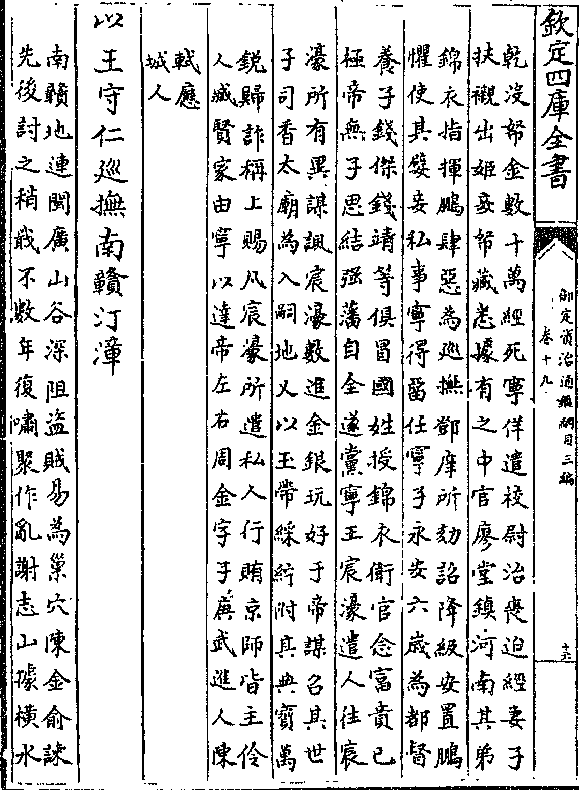 欽定四庫全書
御定資治通鑑綱目三編
卷十九
乾沒帑金數十萬經死寧佯遣校尉治喪迫經妻子
扶櫬出姬妾帑藏悉據有之中官廖堂鎮河南其弟
錦衣指揮鵬肆惡為巡撫鄧庠所劾詔降級安置鵬
懼使其嬖妾私事寧得留任寧子永安六歲為都督
養子錢傑錢靖等俱冒國姓授錦衣衛官念富貴已
極帝無子思結强藩自全遂黨寧王宸濠遣人往宸
濠所有異謀諷宸濠數進金銀玩好于帝謀召其世
子司香太廟為入嗣地又以玉帶綵紵附其典寶萬
銳歸詐稱上賜凡宸濠所遣私人行賄京師皆主伶
人臧賢家由寧以達帝左右周金字子庚武進人陳
軾應
城人
以王守仁巡撫南贛汀漳
南贛地連閩廣山谷深阻盜賊易為巢穴陳金俞諫
先後討之稍戢不數年復嘯聚作亂謝志山據橫水